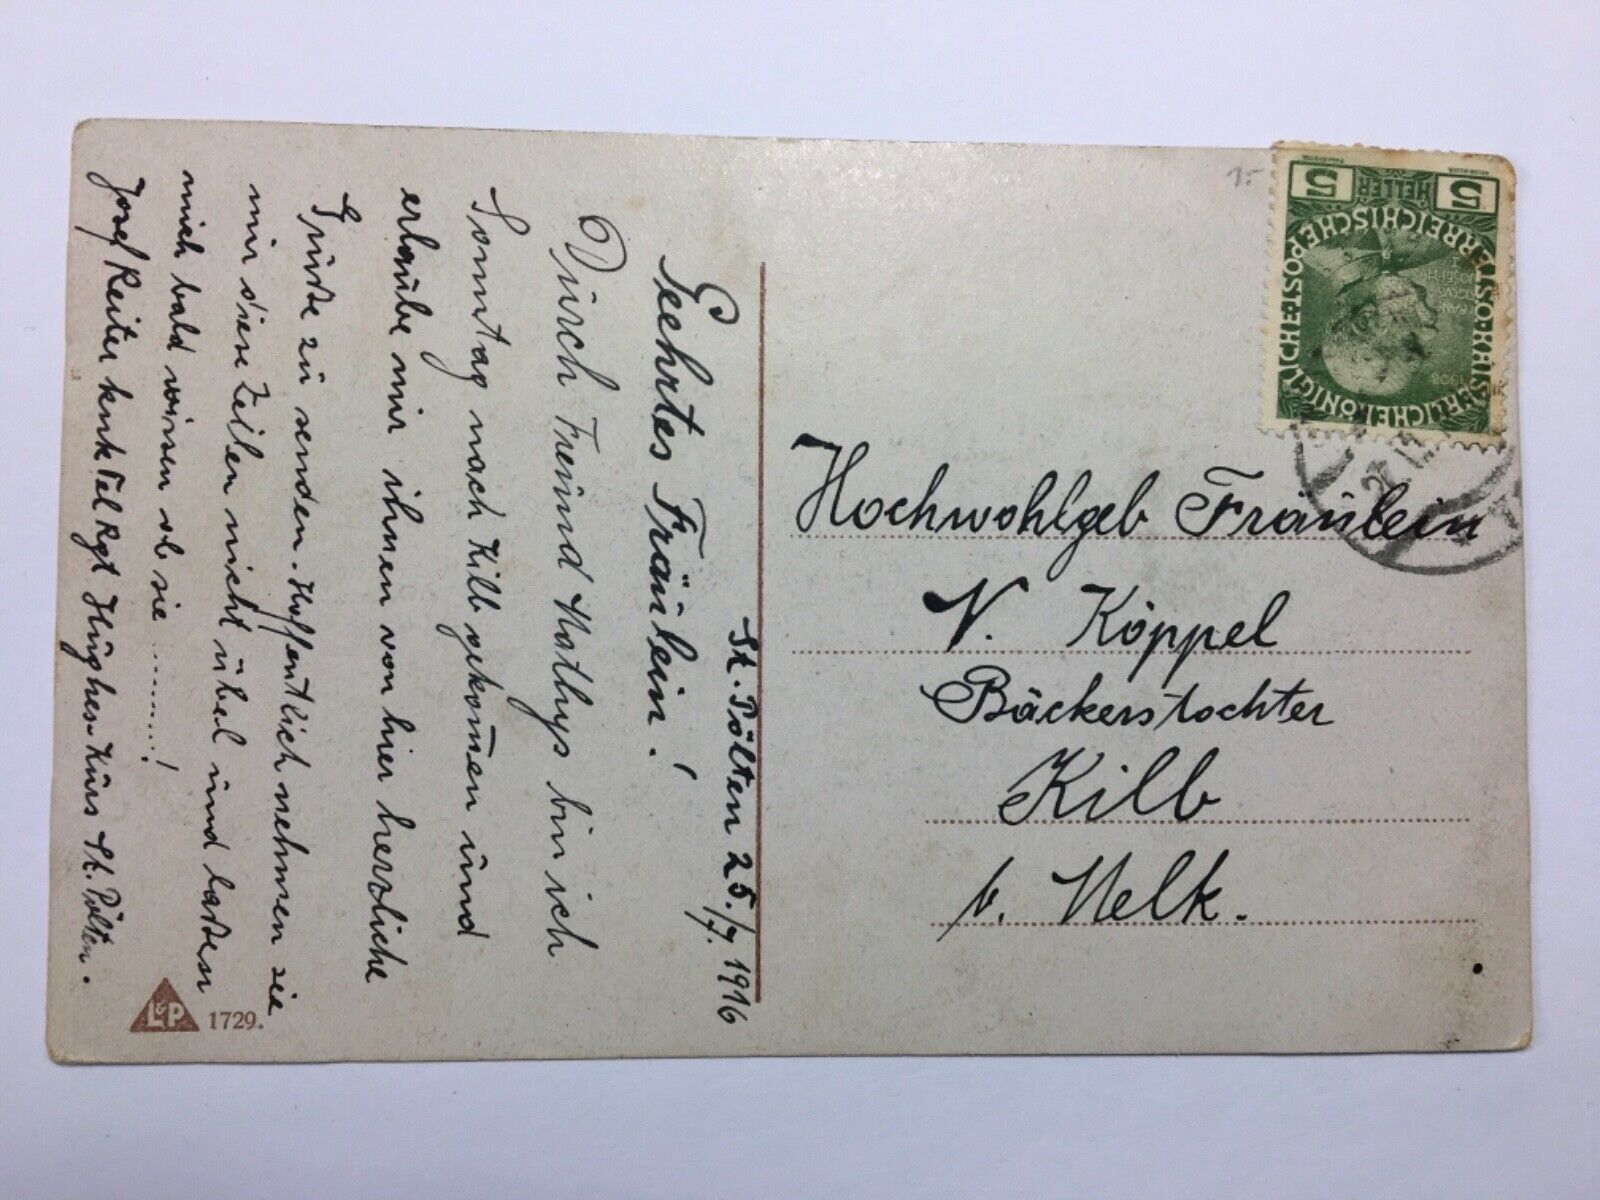 St. Pölten 25./7. 1916
Geehrtes Fräulein!
Dürch Freünd Mathys bin ich
Sonntag nach Kilb gekom̅en ünd
erlaübe mir ihnen von hier herzliche
Grüße zü senden. Hoffentlich nehmen sie
mir diese Zeilen nicht übel ünd laßen
mich bald wissen ob sie .........!
Josef Reiter Tel Rgt Kürs St. Pölten.
L&P 1729.
1.-
5 HELLER 5
KAISERLICHE KÖNIGLICHE ÖSTERREICHISCHE POST
1908
Hochwohlgeb Fräülein
V. Köppel
Bäckerstochter
Kilb
b. Melk.